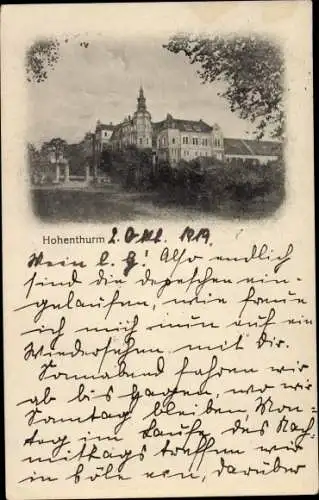 Hohenturm 2. Okt. 1919.
Mein l. G! Also endlich
sind die depeschen ein-
gelaufen, wie freue
ich mich nun auf ein
Wiedersehen mit dir.
Sonnabend fahren wir
ab bis Hagen wo wir
Sonntag bleiben, Mon-
tag im Laufe des Nach-
mittags treffen wir
in Cöln ein, darüber